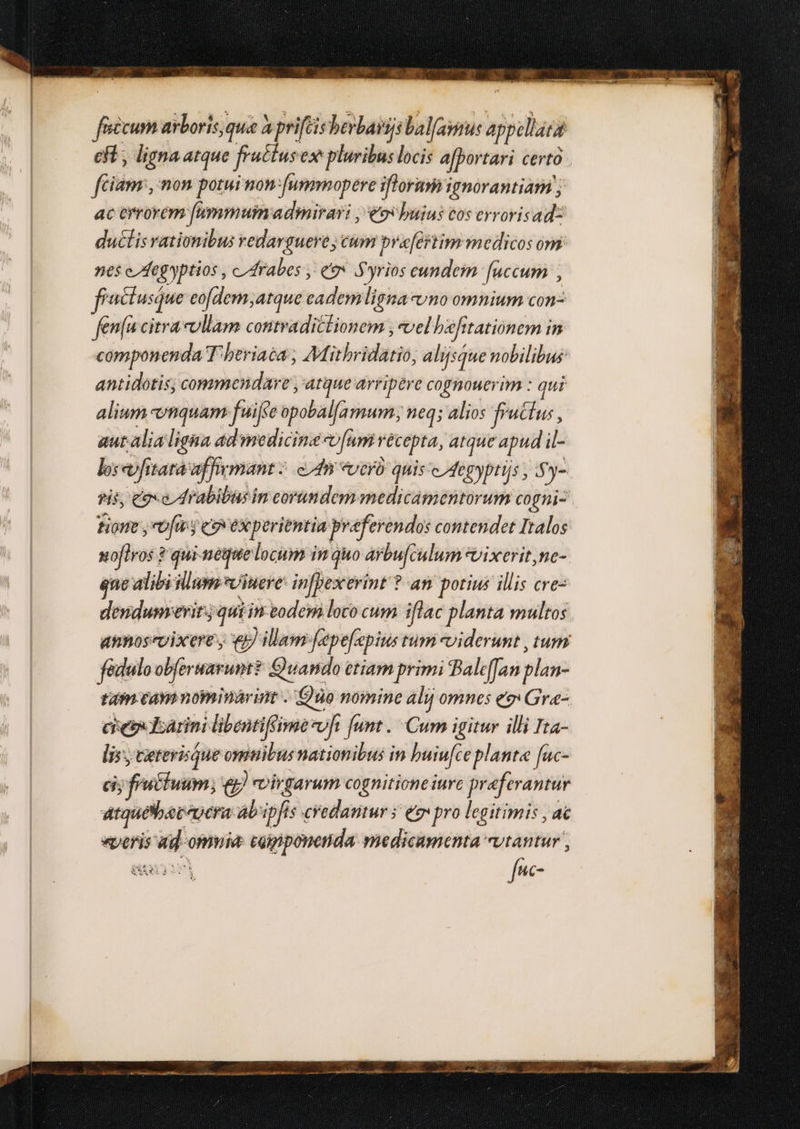 ſuccum arboris, quæ à priſcis herbarijs balſamus appellata
eſt, ligna atque fructus ex pluribus locis aſportari certò
ſciam, non potui non ſummopere iſtorum ignorantiam,
ac errorem ſummum admirari, & huius eos erroris ad-
ductis rationibus redarguere, cum præſertim medicos om
nes Aegyptios, Arabes, & Syrios eundem ſuccum,
fructusq́ue eoſdem, atque eadem ligna vno omnium con-
ſenſu citra vllam contradictionem, vel hæſitationem in
componenda Theriaca, Mithridatio, alijsq́ue nobilibus
antidotis, commendare, atque arripere cognouerim: qui
alium vnquam fuiſſe opobalſamum, neq; alios fructus,
aut alia ligna ad medicinæ vſum recepta, atque apud il-
los vſitata affirmant: An verò quis Aegyptijs, Sy-
ris, & Arabibus in eorundem medicamentorum cogni-
tione, vſu, & experientia præferendos contendet Italos
noſtros? qui neque locum in quo arbuſculum vixerit, ne-
que alibi illam viuere inſpexerint? an potius illis cre-
dendum erit, qui in eodem loco cum iſtac planta multos
annos vixere, & illam ſæpeſæpius tum viderunt, tum
ſedulo obſeruarunt? Quando etiam primi Baleſſan plan-
tam eam nominarint. Quo nomine alij omnes & Græ-
ci & Latini libentiſſime vſi ſunt. Cum igitur illi Ita-
lis, cæterisq́ue omnibus nationibus in huiuſce plantæ ſuc-
ci, fructuum, & virgarum cognitione iure præferantur
atque hæc vera ab ipſis credantur; & pro legitimis, ac
veris ad omnia componenda medicamenta vtantur,
ſuc-